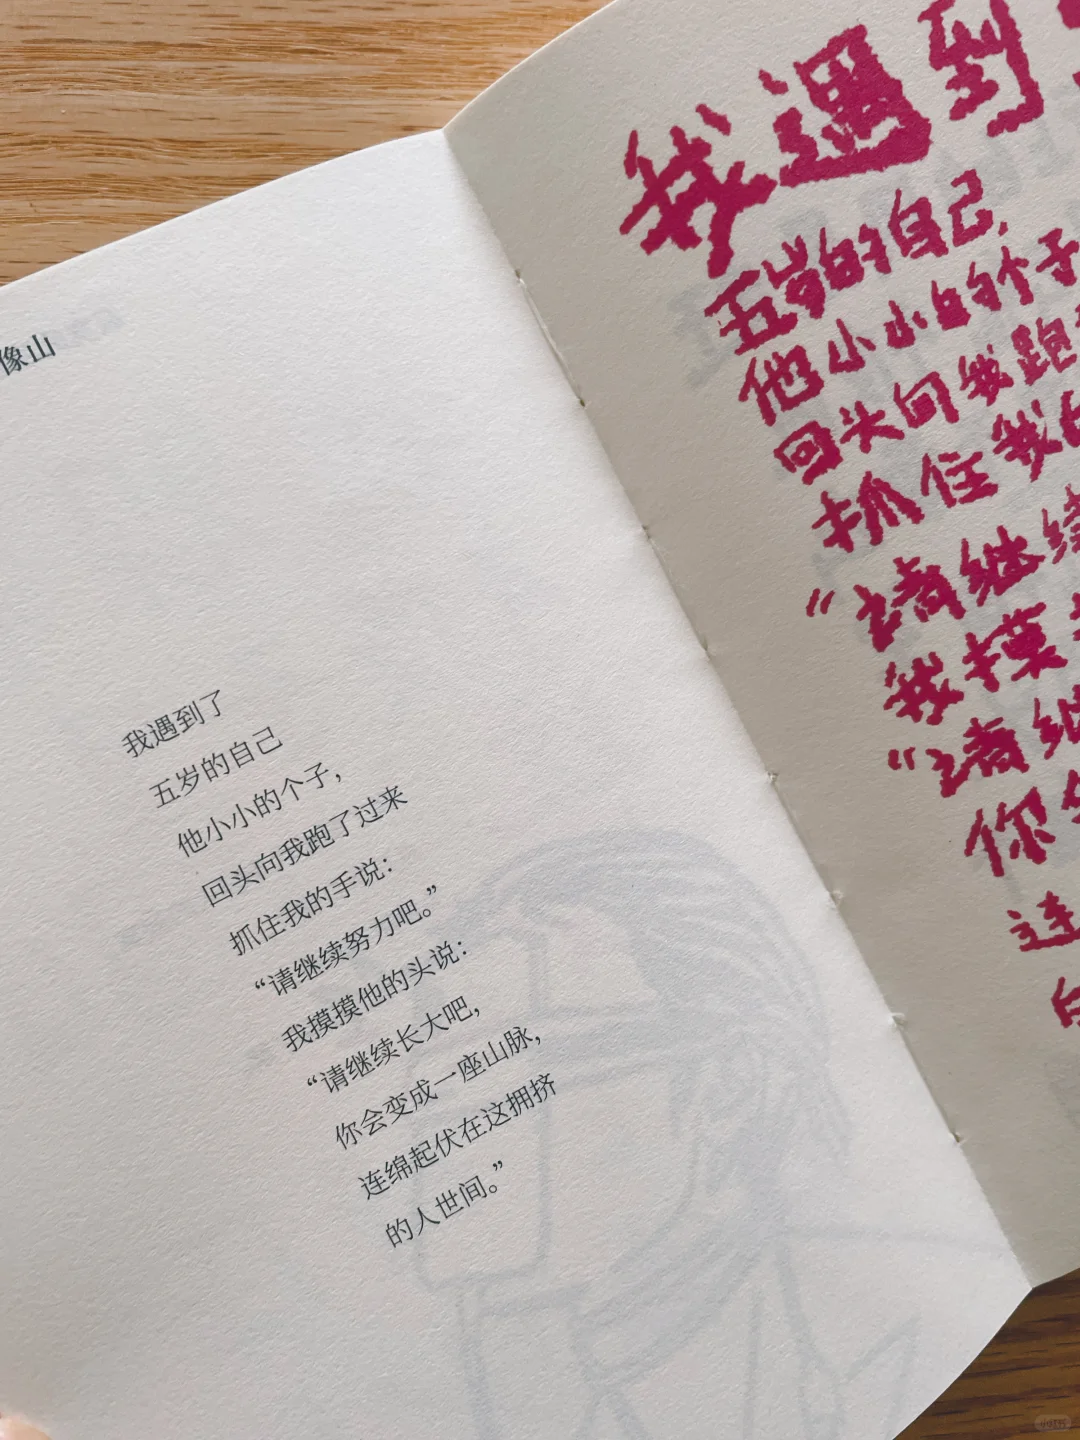 像山
我遇到了
五岁的自己
他小小的个子，
回头向我跑了过来
抓住我的手说：
“请继续努力吧。”
我摸摸他的头说：
“请继续长大吧，
你会变成一座山脉，
连绵起伏在这拥挤
的人世间。”
我遇到
五岁的自己，
他小小的个子
回头向我跑
抓住我的
“请继续
我摸
“请继
你会
连
的
小红书